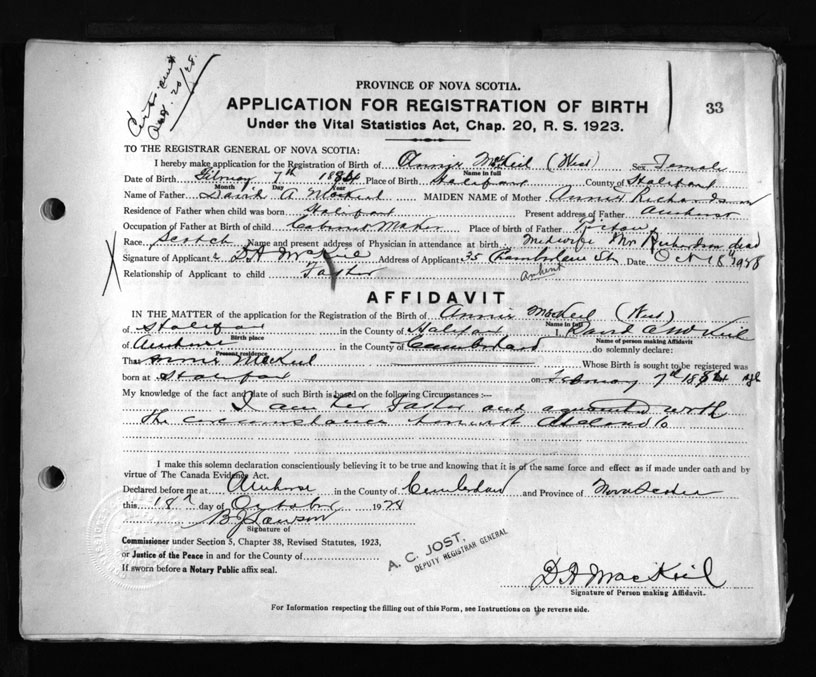 Aug. 20/28.
PROVINCE OF NOVA SCOTIA.
APPLICATION FOR REGISTRATION OF BIRTH
33
Under the Vital Statistics Act, Chap. 20, R. S. 1923.
TO THE REGISTRAR GENERAL OF NOVA SCOTIA:
I hereby make application for the Registration of Birth of Annie MacKeil (West) Sex Female
Name in full
Date of Birth 7th 1884 Place of Birth Halifax County of Halifax
Month Day Year
Name of Father David A MacKeil MAIDEN NAME of Mother Annie Richardson
Residence of Father when child was born Halifax Present address of Father Amherst
Occupation of Father at Birth of child Cabinet Maker Place of birth of Father Pictou
Race Scotch Name and present address of Physician in attendance at birth Midwife Mrs Richardson dead
Signature of Applicant D A MacKeil Address of Applicant 35 St Date Oct 18th 1928
Amherst
Relationship of Applicant to child Father
AFFIDAVIT
IN THE MATTER of the application for the Registration of the Birth of Annie MacKeil (West)
Name in full
of Halifax in the County of Halifax I, David A McKeil
Birth place Name of person making Affidavit
of Amherst in the County of Cumberland do solemnly declare:
Present residence
That Annie MacKeil Whose Birth is sought to be registered was
born at Halifax on February 7th 1884
My knowledge of the fact and date of such Birth is based on the following Circumstances :—
I am her Father and acquainted with
the circumstances
I make this solemn declaration conscientiously believing it to be true and knowing that it is of the same force and effect as if made under oath and by
virtue of The Canada Evidence Act.
Declared before me at Amherst in the County of Cumberland and Province of Nova Scotia
this 18th day of October 1928
Signature of
Commissioner under Section 5, Chapter 38, Revised Statutes, 1923,
or Justice of the Peace in and for the County of
If sworn before a Notary Public affix seal.
A. C. JOST,
DEPUTY REGISTRAR GENERAL
D A MacKeil
Signature of Person making Affidavit.
For Information respecting the filling out of this Form, see Instructions on the reverse side.